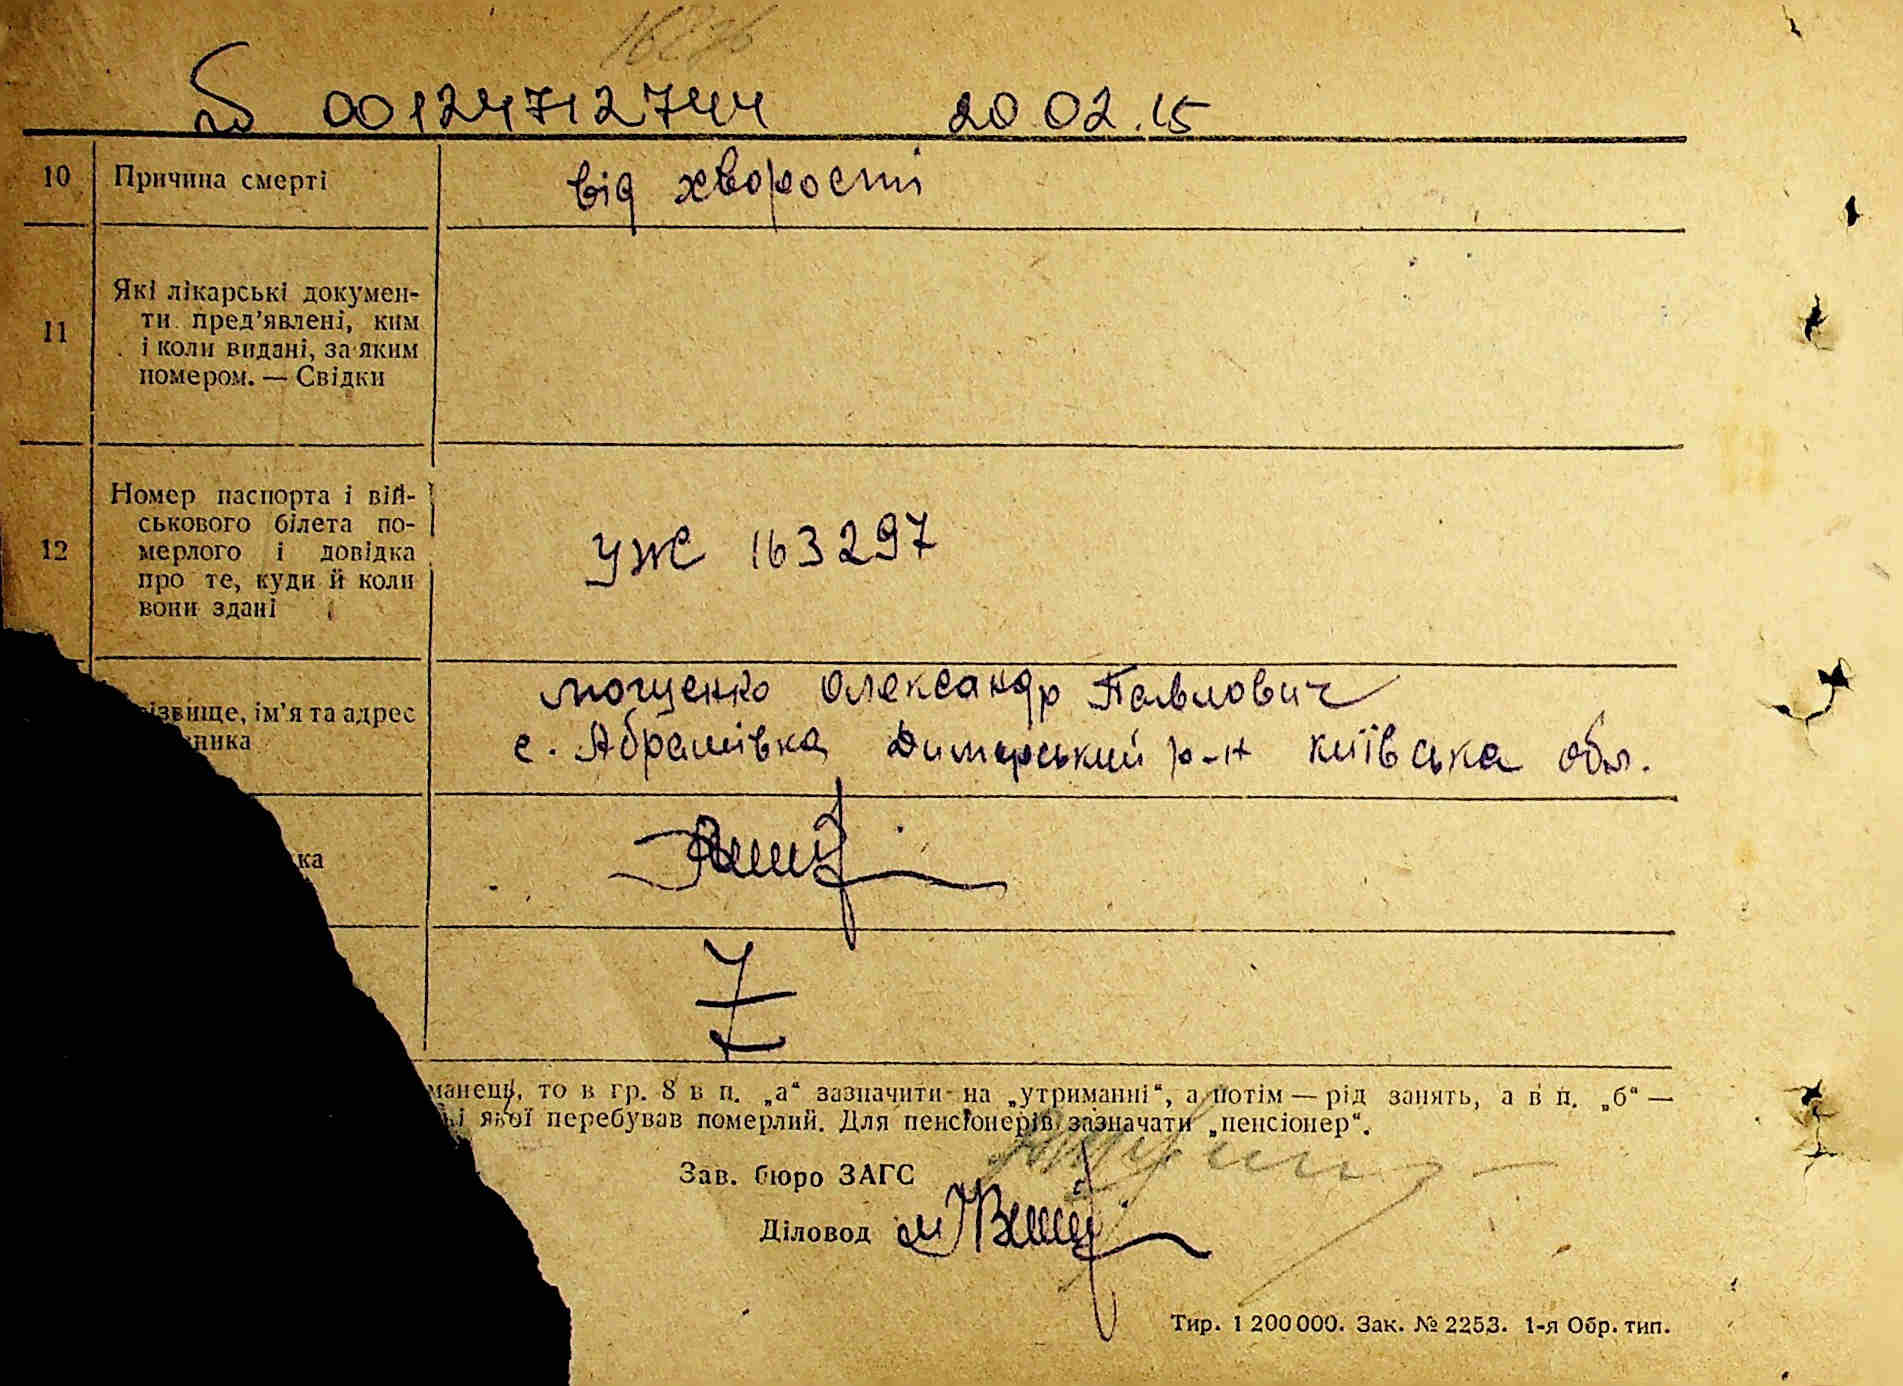 00124712744 20.02.15
10 Причина смерті від хворости
11 Які лікарські документи пред'явлені, ким і коли видані, за яким номером. — Свідки
12 Номер паспорта і військового білета померлого і довідка про те, куди й коли вони здані УЖ 163297
ізвище, ім'я та адрес
ника
Мощенко Олександр Павлович
с. Абрамівка Димерський р-н Київська обл.
ка
манець, то в гр. 8 в п. „а“ зазначити на „утриманні“, а потім — рід занять, а в п. „б“ —
і якої перебував померлий. Для пенсіонерів зазначати „пенсіонер“.
Зав. бюро ЗАГС
Діловод
Тир. 1 200 000. Зак. № 2253. 1-я Обр. тип.